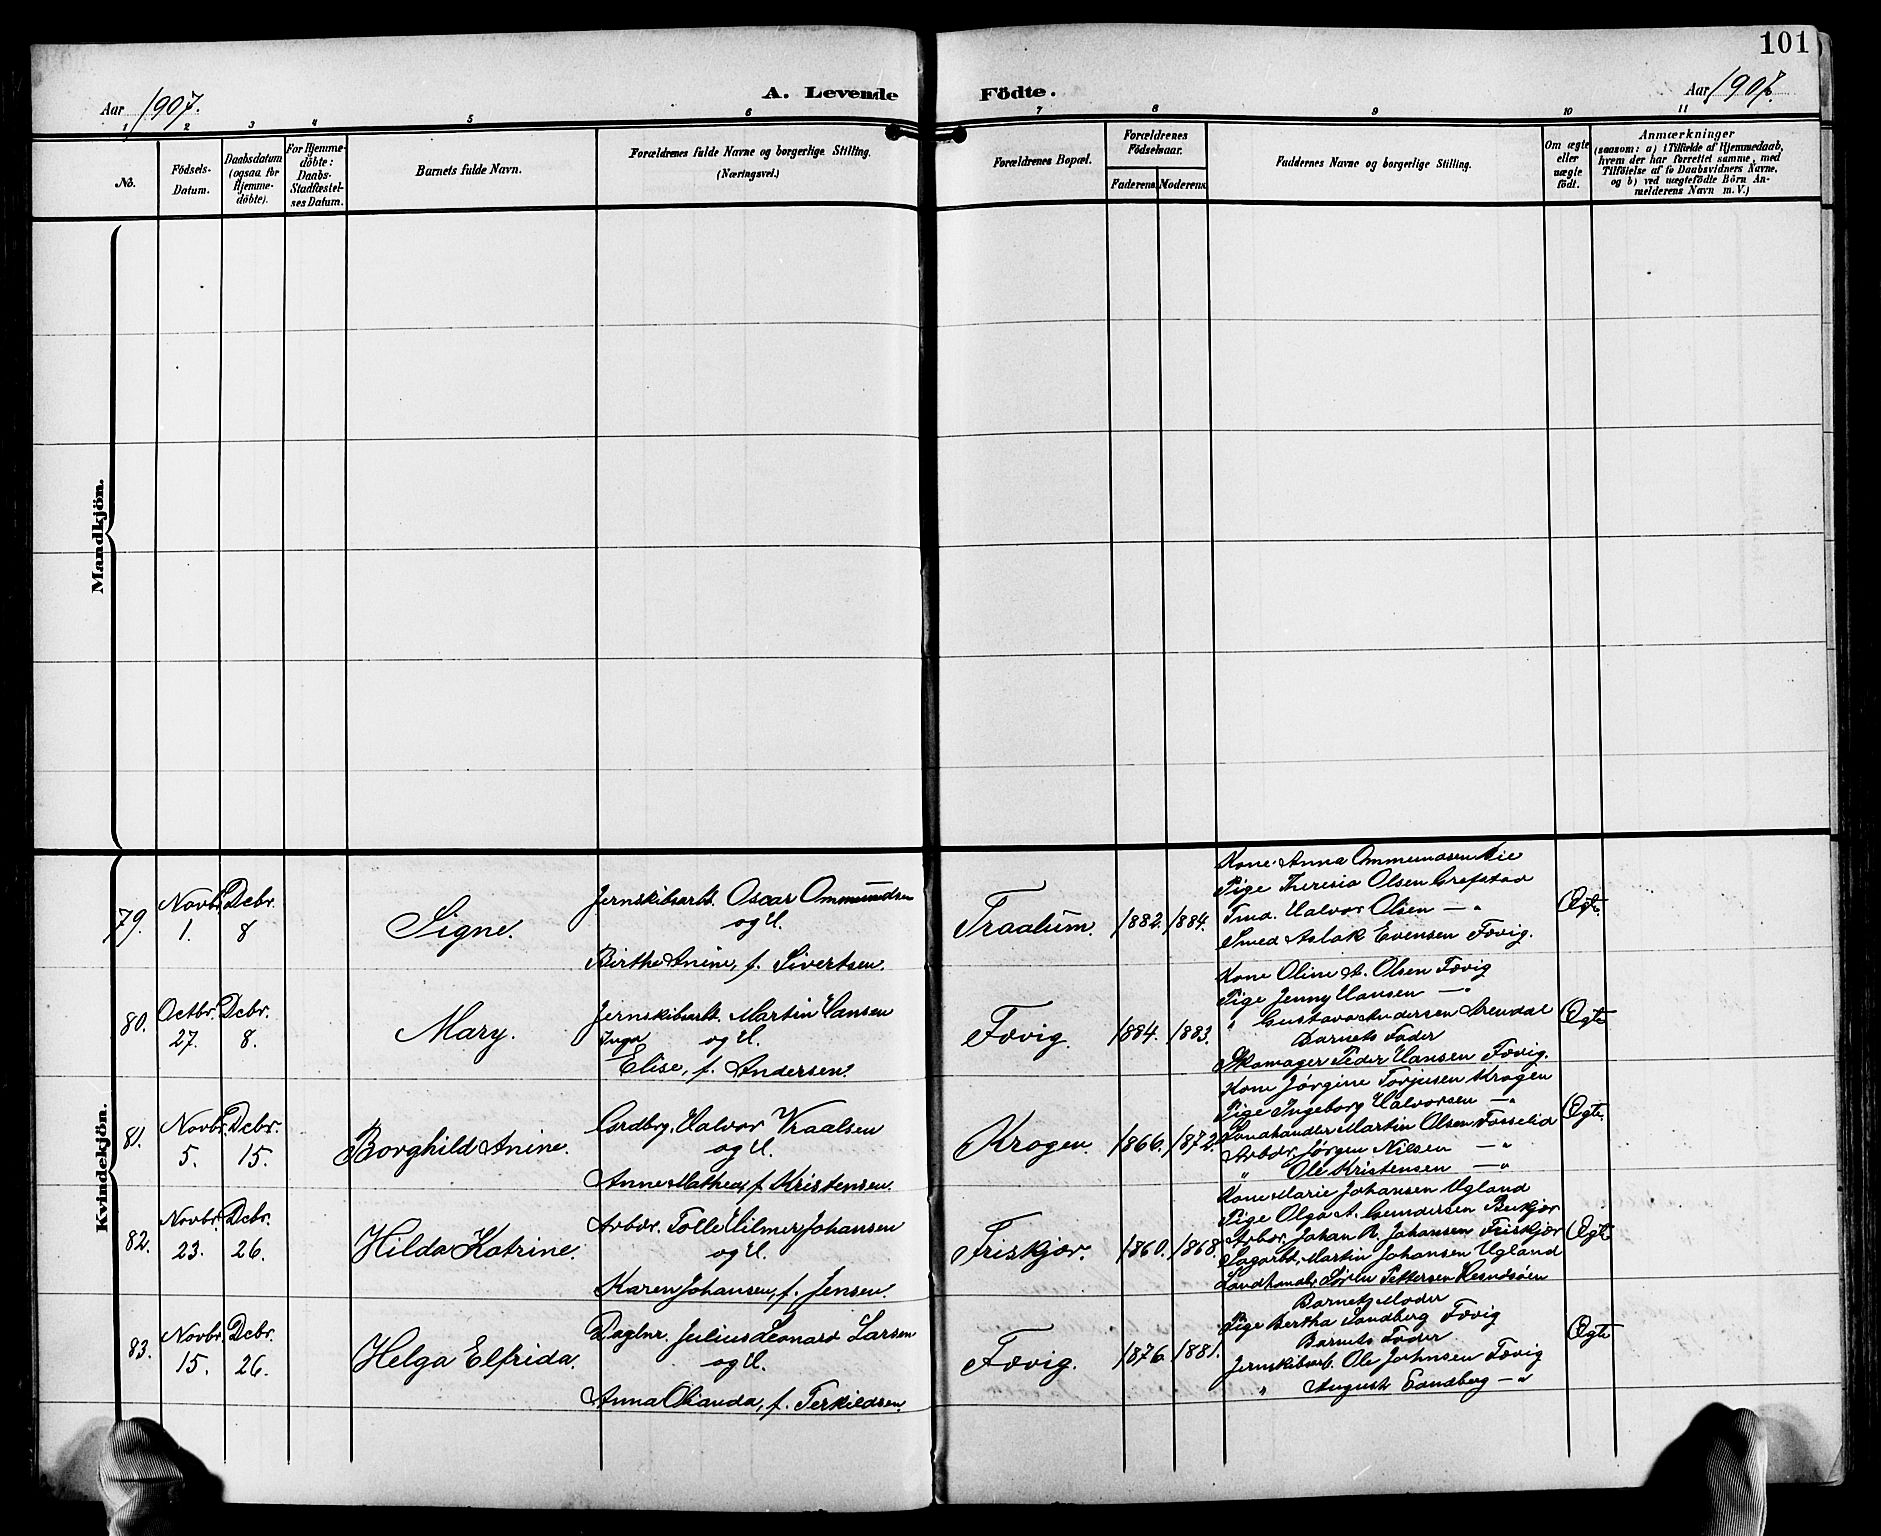 101
Aar 1907.
A. Levende
Födte.
Aar 1907.
1 2 3 4 5 6 7 8 9 10 11
No.
Födsels-
Datum.
Daabsdatum
(ogsaa for
Hjemme-
döbte).
For Hjemme-
döbte:
Daabs-
Stadfæstel-
ses Datum.
Barnets fulde Navn.
Forældrenes fulde Navne og borgerlige Stilling.
(Næringsvei.)
Forældrenes Bopæl.
Forældrenes
Födselsaar.
Faderens.
Moderens.
Faddernes Navne og borgerlige Stilling.
Om ægte
eller
uægte
födt.
Anmærkninger
(saasom: a) i Tilfælde af Hjemmedaab,
hvem der har forrettet samme, med
Tilföielse af to Daabsvidners Navne,
og b) ved uægtefödte Börn An-
melderens Navn m. V.)
Mandkjön.
Kvindekjön.
79.
Novbr.
1.
Dcbr.
8
Signe.
Jernskibsarb. Oscar Ommundsen
og H.
Birthe Anine, f. Sivertsen.
Traalum.
1882.
1884.
Kone Anna Ommundsen
Pige Theresia Olsen Grefstad
Tmd. Halvor Olsen —"
Smed Aslak Evensen Fævig.
Ægte
80.
Octbr.
27.
Dcbr.
8.
Mary.
Jernskibsarb. Martin Hansen
Inga og H.
Elise, f. Andersen.
Fævig.
1884.
1883.
Kone Oline A. Olsen Fævig
Pige Jenny Hansen —"
" Gustava Andersen Arendal
Barnets Fader
Skomager Peder Hansen Fævig.
Ægte
81.
Novbr.
5.
Dcbr.
15.
Borghild Anine.
Gordbrg. Halvor Vraalsen
og H.
Anne Mathea, f. Kristensen.
Krogen.
1866.
1872.
Kone Jørgine Torjusen Krogen
Pige Ingeborg Halvorsen —"
Landhandler Martin Olsen Fosselid
Arbdr. Jørgen Nilsen —"
" Ole Kristensen —"
Ægte.
82.
Novbr.
23.
Dcbr.
26.
Hilda Katrine.
Arbdr. Tolle Hilmer Johansen
og H.
Karen Johansen, f. Jensen.
Friskjær.
1860.
1868.
Kone Marie Johansen Ugland
Pige Olga A. Gundersen Birkjær
Arbdr. Johan R. Johansen Friskjær
Sagarbd. Martin Johansen Ugland
Landhandl. Søren Pettersen
Ægte
83.
Novbr.
15.
Dcbr.
26.
Helga Elfrida.
Daglnr. Julius Leonard Larsen
og H.
Anna Olianda, f. Terkildsen.
Fævig.
1876.
1881.
Barnets Moder
Pige Bertha Sandberg Fævig
Barnets Fader
Jernskibsarb. Ole Johnsen Fævig
" August Sandberg —"
Ægte